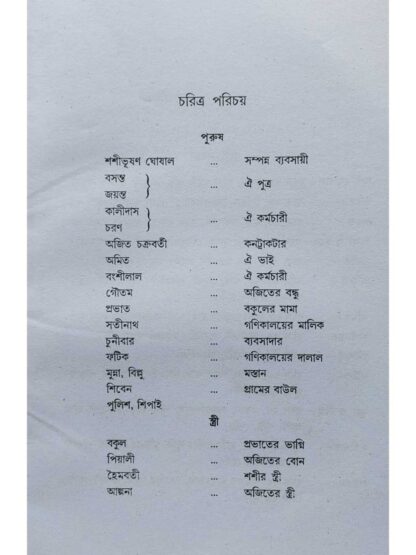 চরিত্র পরিচয়
পুরুষ
শশীভূষণ ঘোষাল ... সম্পন্ন ব্যবসায়ী
বসন্ত
জয়ন্ত } ... ঐ পুত্র
কালীদাস
চরণ } ... ঐ কর্মচারী
অজিত চক্রবর্তী ... কনট্রাকটার
অমিত ... ঐ ভাই
বংশীলাল ... ঐ কর্মচারী
গৌতম ... অজিতের বন্ধু
প্রভাত ... বকুলের মামা
সতীনাথ ... গণিকালয়ের মালিক
চুনীবার ... ব্যবসাদার
ফটিক ... গণিকালয়ের দালাল
মুন্না, বিল্লু ... মস্তান
শিবেন ... গ্রামের বাউল
পুলিশ, শিপাই
স্ত্রী
বকুল ... প্রভাতের ভাগ্নি
পিয়ালী ... অজিতের বোন
হৈমবতী ... শশীর স্ত্রী
আল্পনা ... অজিতের স্ত্রী